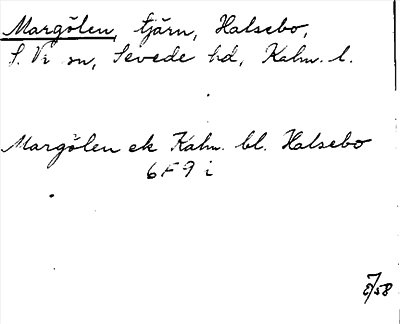 Margölen, tjärn, Halsebo,
S. Vi sn, Sevede hd, Kalm. l.
Margölen ek Kalm. bl. Halsebo
6F9i